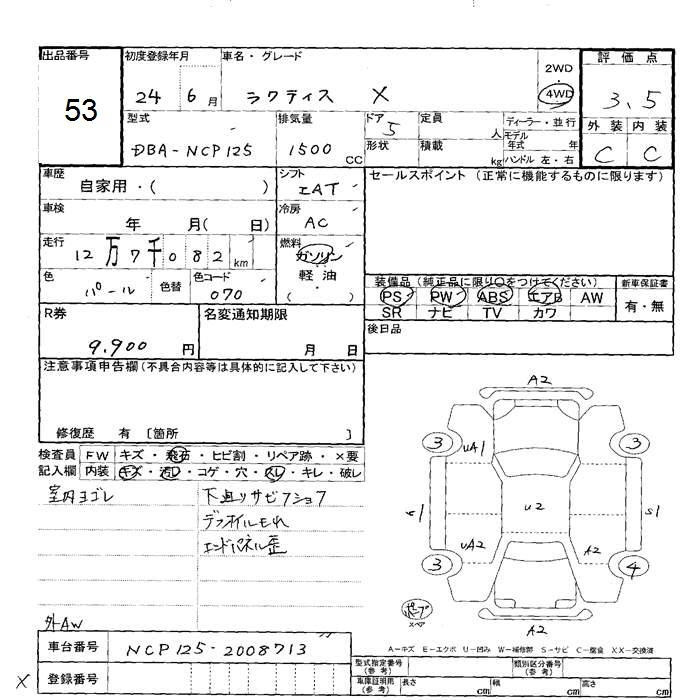 出品番号 53
初度登録年月 24 6月
車名・グレード ラクティス X
2WD
4WD
評価点 3.5
外装 内装
C C
型式 DBA-NCP125
排気量 1500 CC
ドア 5
形状
定員 人
積載 kg
ディーラー・並行
モデル年式 年
ハンドル 左・右
車歴 自家用・( )
シフト IAT
セールスポイント(正常に機能するものに限ります)
車検 年 月( 日)
冷房 AC
走行 12万7千082km
燃料 ガソリン
軽油
( )
色 パール 色替
色コード 070
装備品(純正品に限り○をつけてください)
PS PW ABS エアB AW
SR ナビ TV カワ
新車保証書
有・無
R券 9,900円
名変通知期限 月 日
後日品
注意事項申告欄(不具合内容等は具体的に記入して下さい)
修復歴 有 〔箇所 〕
検査員記入欄
FW キズ・飛石・ヒビ割・リペア跡・×要
内装 キズ・汚レ・コゲ・穴・スレ・キレ・破レ
室内ヨゴレ
下廻リサビ
デフオイルモレ
エンドパネル歪
外AW
A2
3 3
UA1
U2
S1
UA2 A2
3 4
A2
スペア
A-キズ E-エクボ U-凹み W-補修部 S-サビ C-腐食 XX-交換済
車台番号 NCP125-2008713
X 登録番号
型式指定番号(参考)
類別区分番号(参考)
車庫証明用(参考) 長さ cm 幅 cm 高さ cm